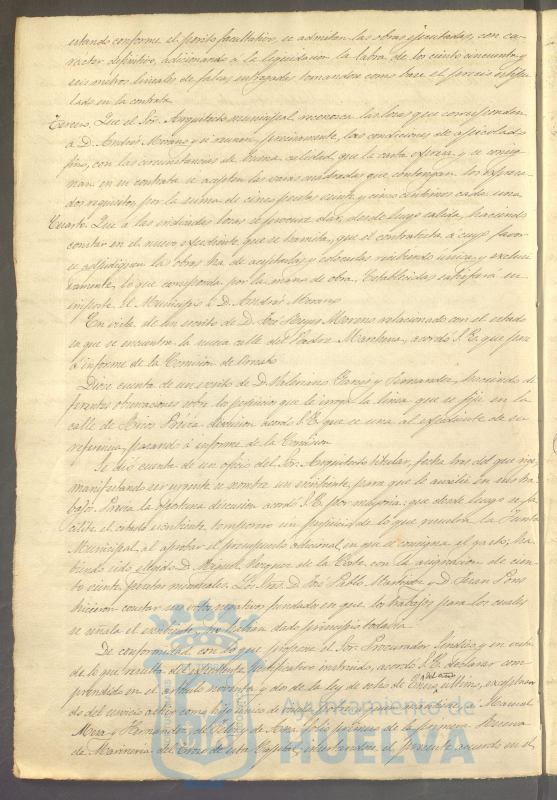 estando conforme el perito facultativo, se admitan las obras ejecutadas, con ca-
racter definitivo, adicionando a la liquidacion la labra de los ciento cincuenta y
seis metros lineales de entregados tomandose como base el precio estipu-
lado en la contrata.
Tercero. Que el Sor. Arquitecto municipal reconozca las losas que corresponden
a D. Andrés Moreno y si reunen, precisamente, las condiciones de
fino, con las circunstancias de buena calidad que la carta expresa y se consig-
nan en su contrato se acepten las varas cuadradas que contengan los expresa-
dos requisitos, por la suma de cinco pesetas veinte y cinco centimos cada una
Cuarto. Que a las indicadas losas se procure dar, desde luego salida, haciendo
constar en el nuevo expediente que se tramita, que el contratista a cuyo favor
se adjudiquen las obras ha de aceptarlas y colocarlas recibiendo unica y exclusi-
vamente, lo que corresponda por la mano de obra. Establecidas satisfará su
importe el Municipio a D. Andrés Moreno
En vista de un escrito de D. José Moreno relacionado con el estado
en que se encuentra la nueva calle del Padre Marchena, acordó S. E. que pase
a informe de la Comision de Ornato
Diose cuenta de un escrito de D. Valeriano y Fernandez, haciendo di-
ferentes observaciones sobre los perjuicios que le irroga la linea que se fijó en la
calle de Previa discusion acordó S. E. que se una al expediente de su
referencia, pasando a informe de la Comision
Se dio cuenta de un oficio del Sor. Arquitecto titular, fecha tres del que rige,
manifestando ser urgente se nombre un escribiente para que le auxilie en sus tra-
bajos. Previa la oportuna discusion acordó S. E. por mayoria: que desde luego se fa-
cilite el citado escribiente, temporero sin perjuicio de lo que resuelva la Junta
Municipal al aprobar el presupuesto adicional, en que se consigna el gasto; ha-
biendo sido elegido D. Miguel de la Corte con la asignacion de cien-
to veinte pesetas mensuales. Los Sres. D. José Pablo Martinez y D. Juan Pons
hicieron constar sus votos negativos fundados en que los trabajos para los cuales
se señala el escribiente, no habian dado principio todavia
De conformidad con lo que propone el Sor. Procurador Sindico y en vista
de lo que resulta del expediente justificativo instruido, acordó S. E. declarar com-
prendido en el articulo noventa y dos de la ley de seis de Enero ultimo, exceptuan-
do del servicio activo como hijo unico de viuda pobre a quien mantiene a Manuel
Mora y Hernandez, de Pedro y de Ana folio primero de la primera Reserva
de Marineria del de esta Capital, insertandose el presente acuerdo en el
Ayuntamiento de
HUELVA